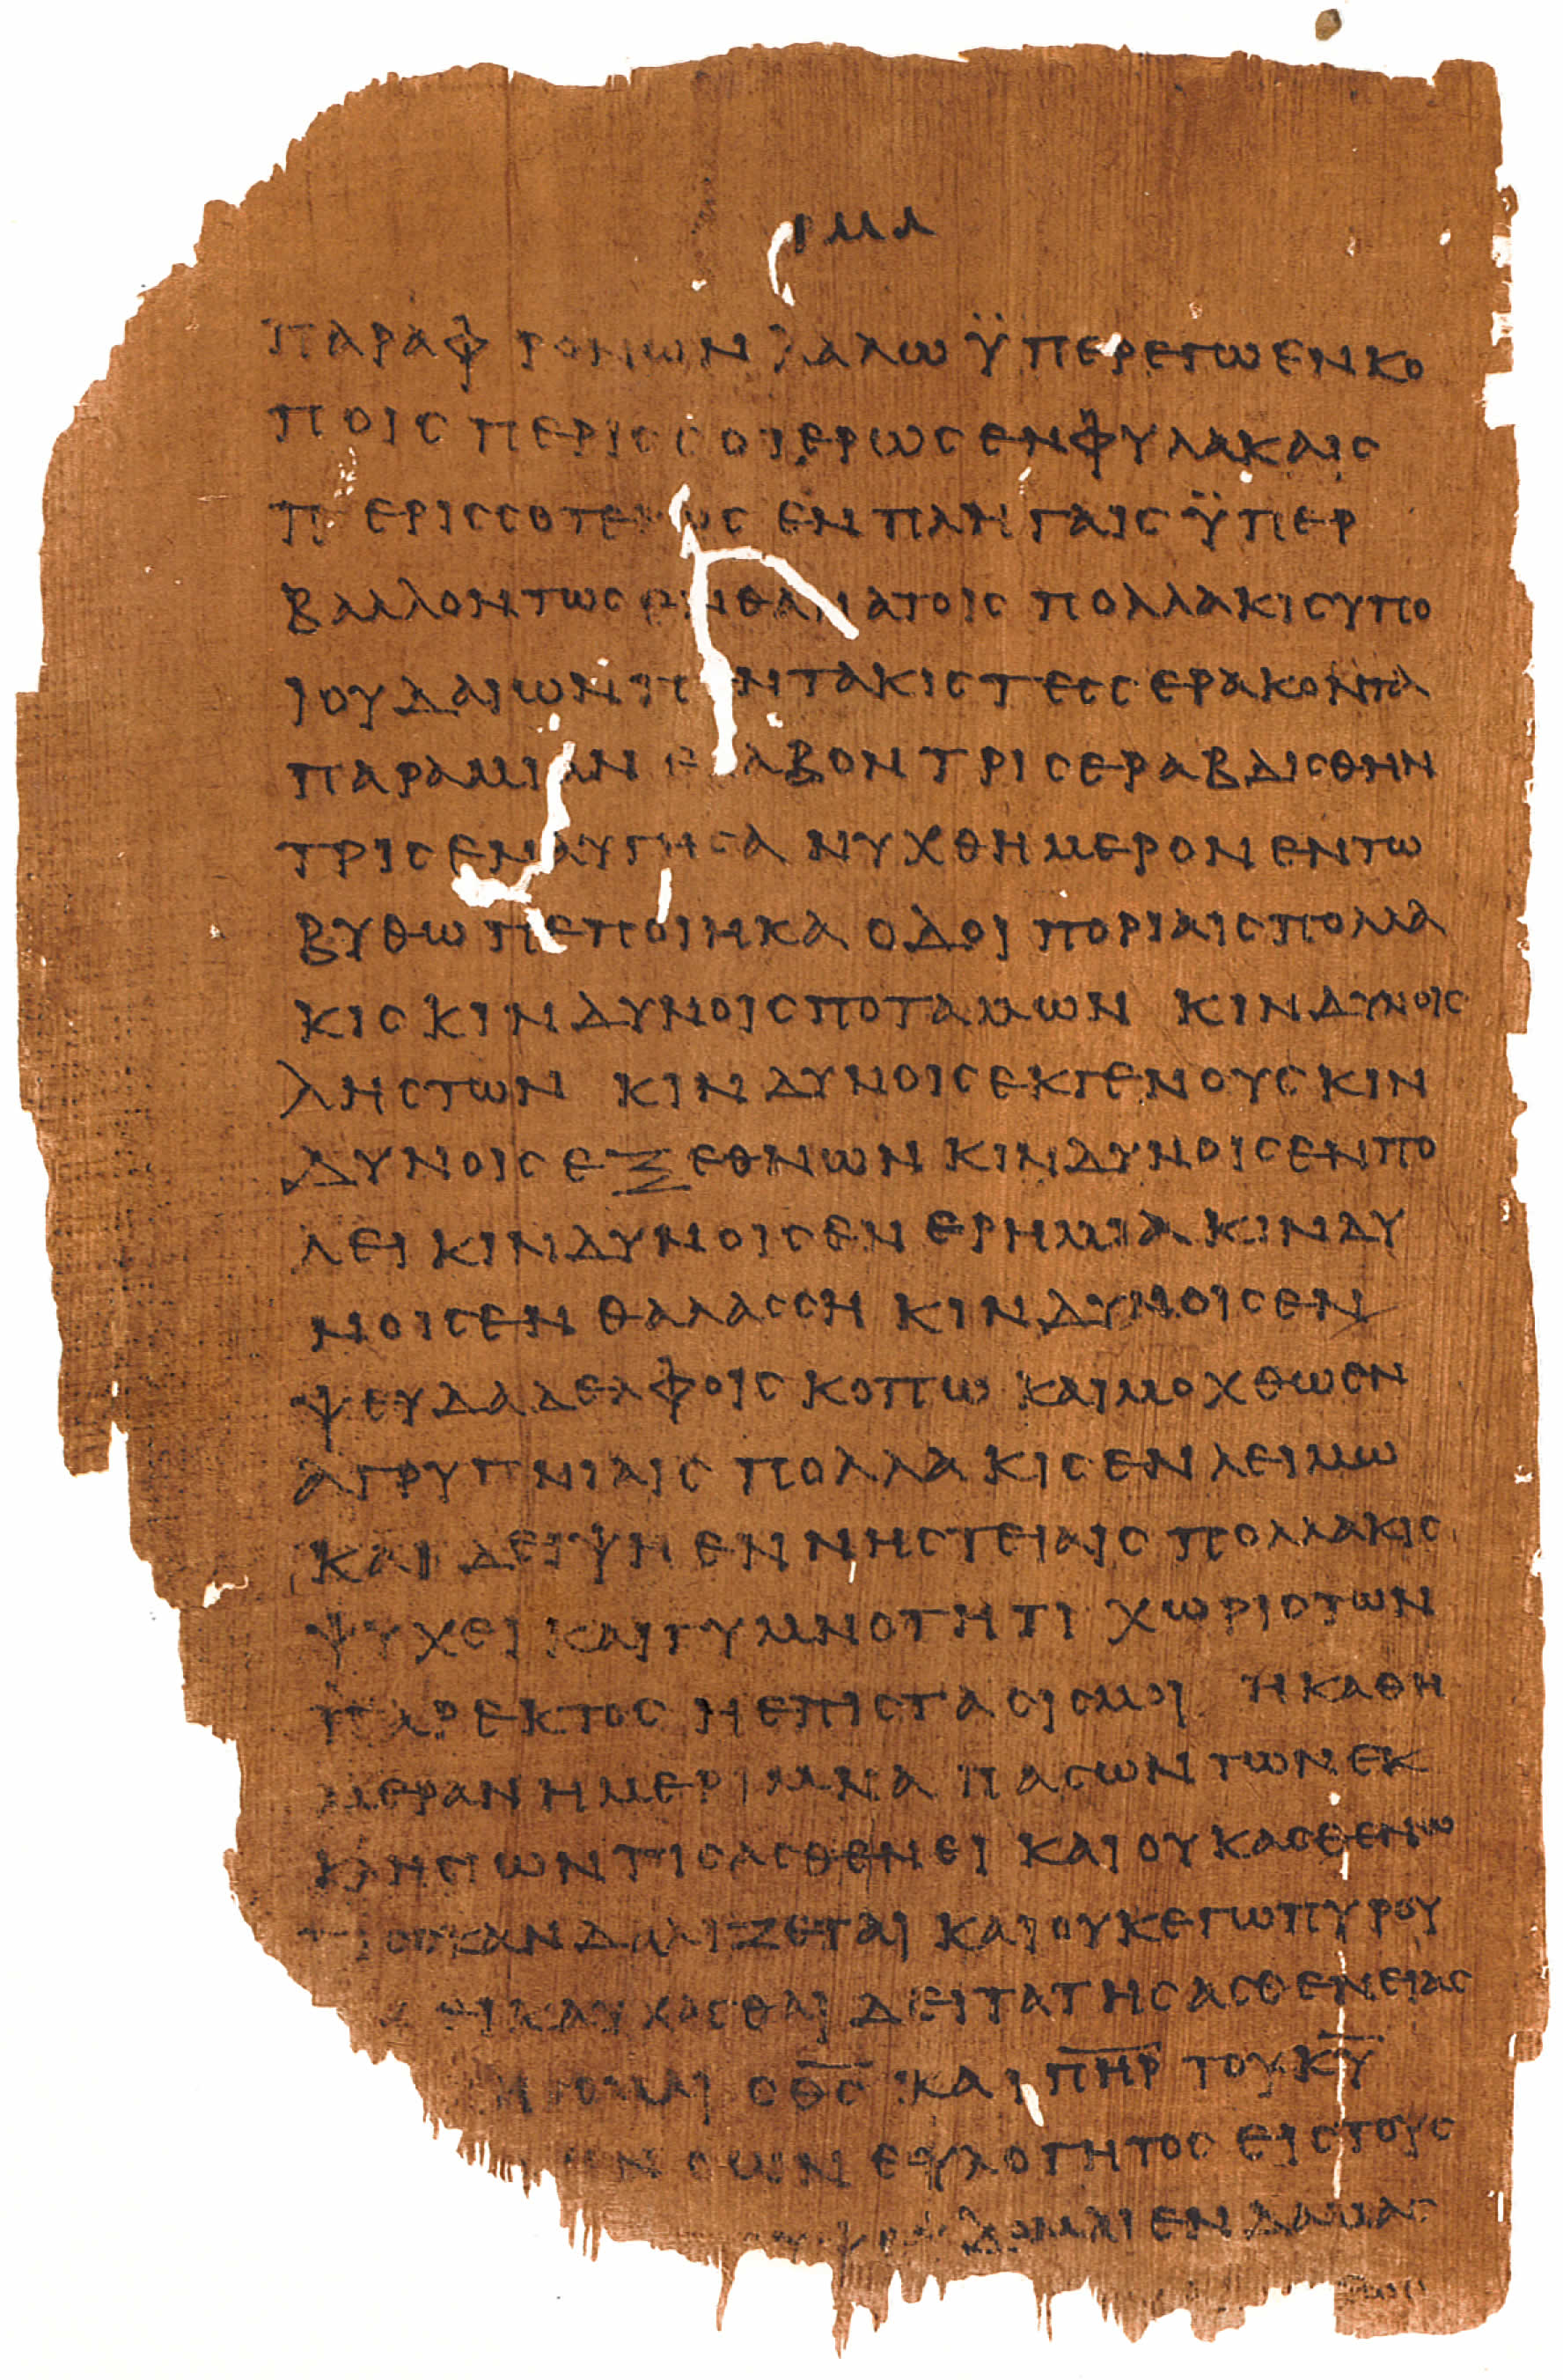 ρμα
παραφρονων λαλω ϋπερεγωενκο
ποις περισσοτερωςενφυλακαις
περισσοτερως ενπληγαις ϋπερ
βαλλοντως ενθανατοις πολλακιςυπο
ιουδαιων πεντακις τεσσερακοντα
παραμιαν ελαβον τρις εραβδισθην
τρις εναυαγησα νυχθημερον εντω
βυθω πεποιηκα οδοιποριαις πολλα
κις κινδυνοις ποταμων κινδυνοις
ληστων κινδυνοις εκγενους κιν
δυνοις εξ εθνων κινδυνοις ενπο
λει κινδυνοις εν ερημια κινδυ
νοις εν θαλασση κινδυνοις εν
ψευδαδελφοις κοπω και μοχθω εν
αγρυπνιαις πολλακις εν λειμω
και δειψη εν νηστειαις πολλακις
ψυχει και γυμνοτητι χωρις των
παρεκτος η επιστασις μοι η καθη
μεραν η μεριμνα πασων των εκ
κλησιων τις ασθενει και ουκ ασθενω
τις σκανδαλιζεται και ουκ εγω πυρου
καυχασθαι δει τα της ασθενειας
ο θ̅ς̅ και π̅η̅ρ̅ του κ̅υ̅
ων ευλογητος εις τους
εν δαμας